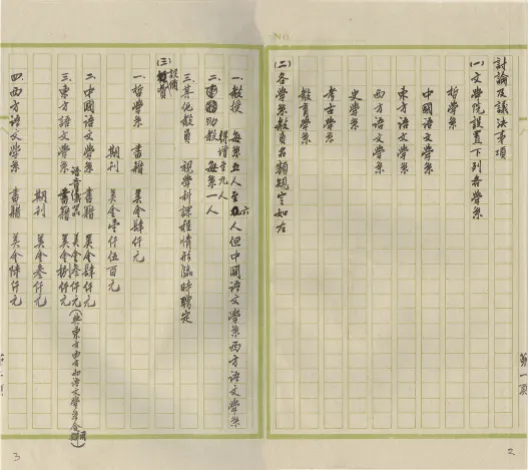 討論及議決事項
(一)文學院設置下列各學系
哲學系
中國語文學系
東方語文學系
西方語文學系
史學系
考古學系
教育學系
(二)各學系教員名額規定如左
第一頁
2
一、教授 每系五人至六人但中國語文學系西方語文學系得增至九人
二、助教 每系一人
三、其他教員 視學科課程情形臨時聘定
(三)設備費
一、哲學系 書籍 美金肆仟元
期刊 美金壹仟伍百元
二、中國語文學系 書籍 美金肆仟元
語音儀器 美金叁仟元(與東方西方語文學系合用)
三、東方語文學系 書籍 美金拾仟元
期刊 美金叁仟元
四、西方語文學系 書籍 美金陸仟元
3